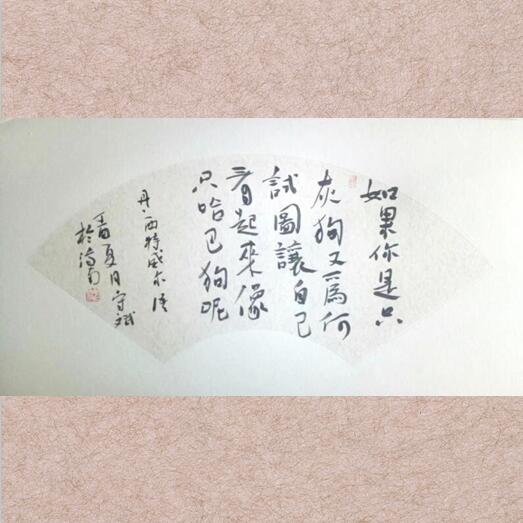 如果你是只
灰狗又爲何
試圖讓自己
看起來像
只哈巴狗呢
丹·西特威尔 语
夏日守斌
於济南